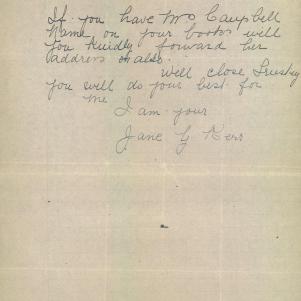 If you have Mrs Campbell
Name on your books will
you Kindly forward her
address also.
Will close Trusting
you will do your best for
me
I am your
Jane G Kerr